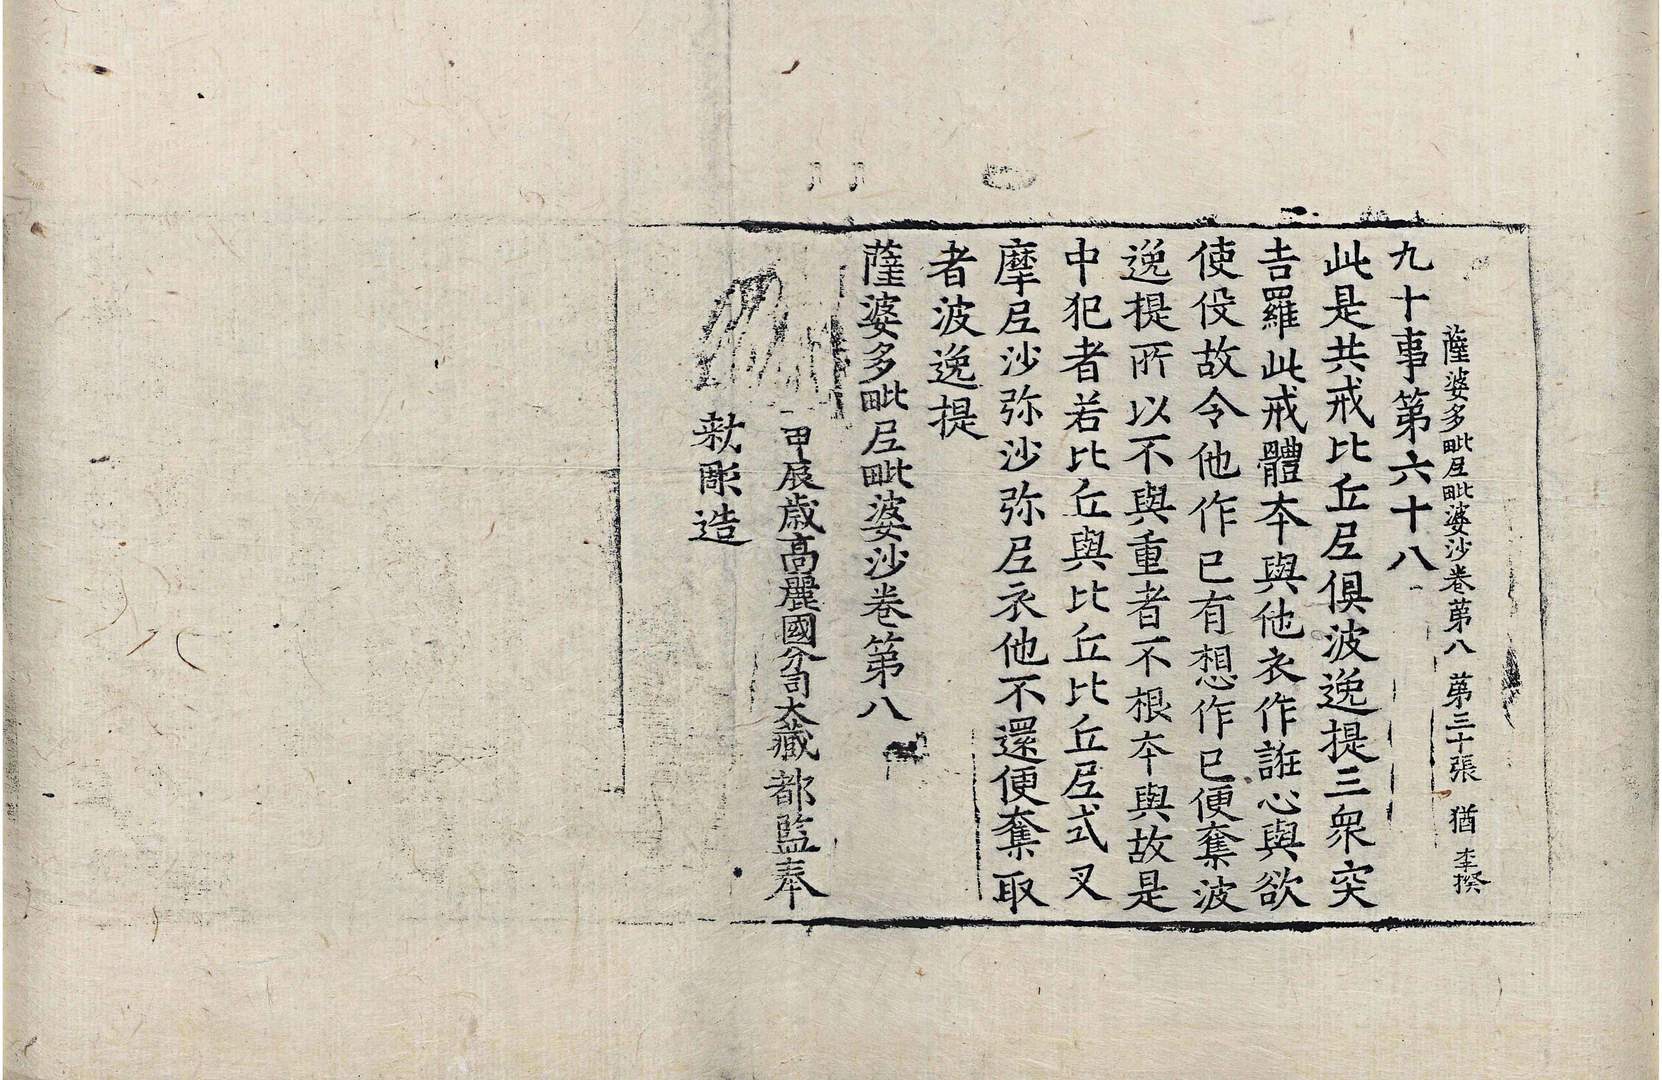 薩婆多毗尼毗婆沙卷第八 第三十張 猶 李揆
九十事第六十八
此是共戒比丘尼俱波逸提三衆突
吉羅此戒體本與他衣作誑心與欲
使役故令他作已有想作已便奪波
逸提所以不與重者不根本與故是
中犯者若比丘與比丘比丘尼式叉
摩尼沙弥沙弥尼衣他不還便奪取
者波逸提
薩婆多毗尼毗婆沙卷第八
甲辰歲高麗國分司大藏都監奉
勑彫造